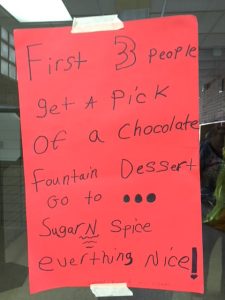 First 3 People
get A Pick
Of a Chocolate
Fountain Dessert
Go to •••
Sugar N Spice
everthing Nice!